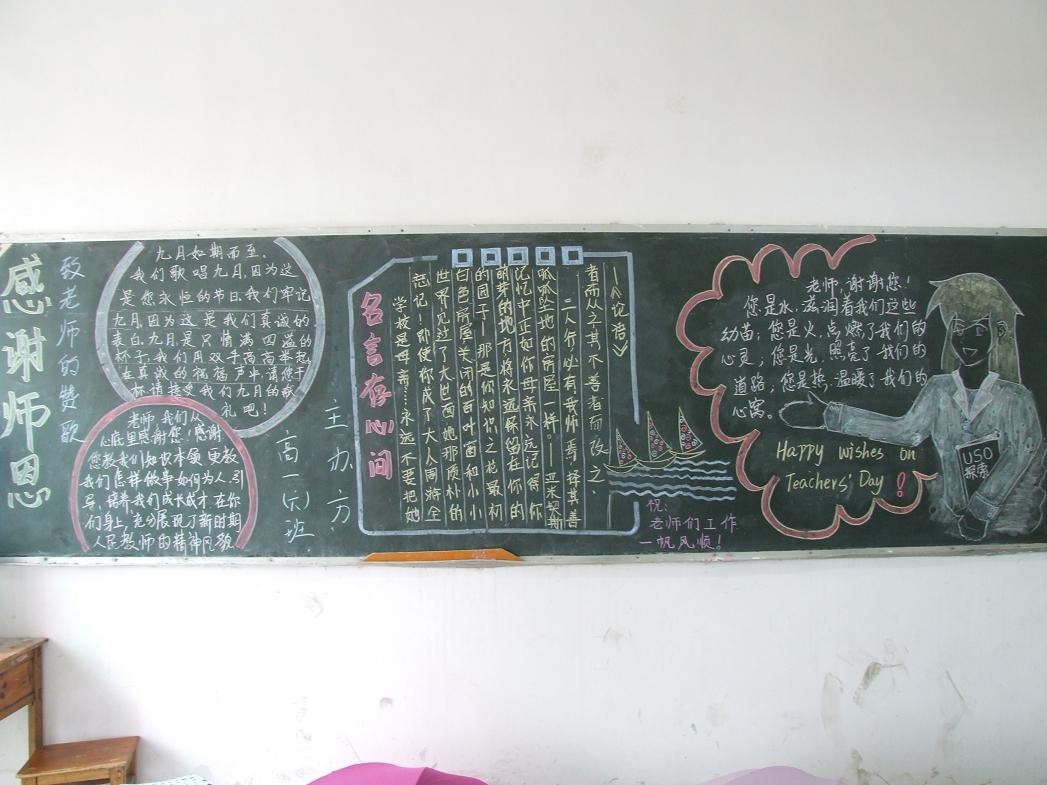 感谢师恩
致老师的赞歌
九月如期而至。
我们歌唱九月,因为这
是您永恒的节日,我们牢记
九月,因为这是我们真诚的
表白.九月,是只情满四溢的
杯子,我们用双手高高举起,
在真诚的祝福声中,请您干
杯!请接受我们九月的敬
礼吧!
老师,我们从
心底里感谢您!感谢
您教我们知识本领,更教
我们怎样做事如何为人,引
导、培养我们成长成才,在你
们身上,充分展现了新时期
人民教师的精神风貌
主办方
高一(六)班
名言存心间
学校是母亲……永远不要把她
忘记!即使你成了大人,周游全
世界,见过了大世面,她那质朴的
白色房屋,关闭的百叶窗和小小
的园子——那是你知识之花最初
萌芽的地方,将永远保留在你的
记忆中,正如你母亲永远记得你
呱呱坠地的房屋一样。——亚米契斯
三人行,必有我师焉,择其善
者而从之,其不善者而改之、
——《论语》
祝:
老师们工作
一帆风顺!
老师,谢谢您!
您是水,滋润着我们这些
幼苗;您是火,点燃了我们的
心灵;您是光,照亮了我们的
道路;您是热,温暖了我们的
心窝。
Happy wishes on
Teachers' Day !
USO
探索